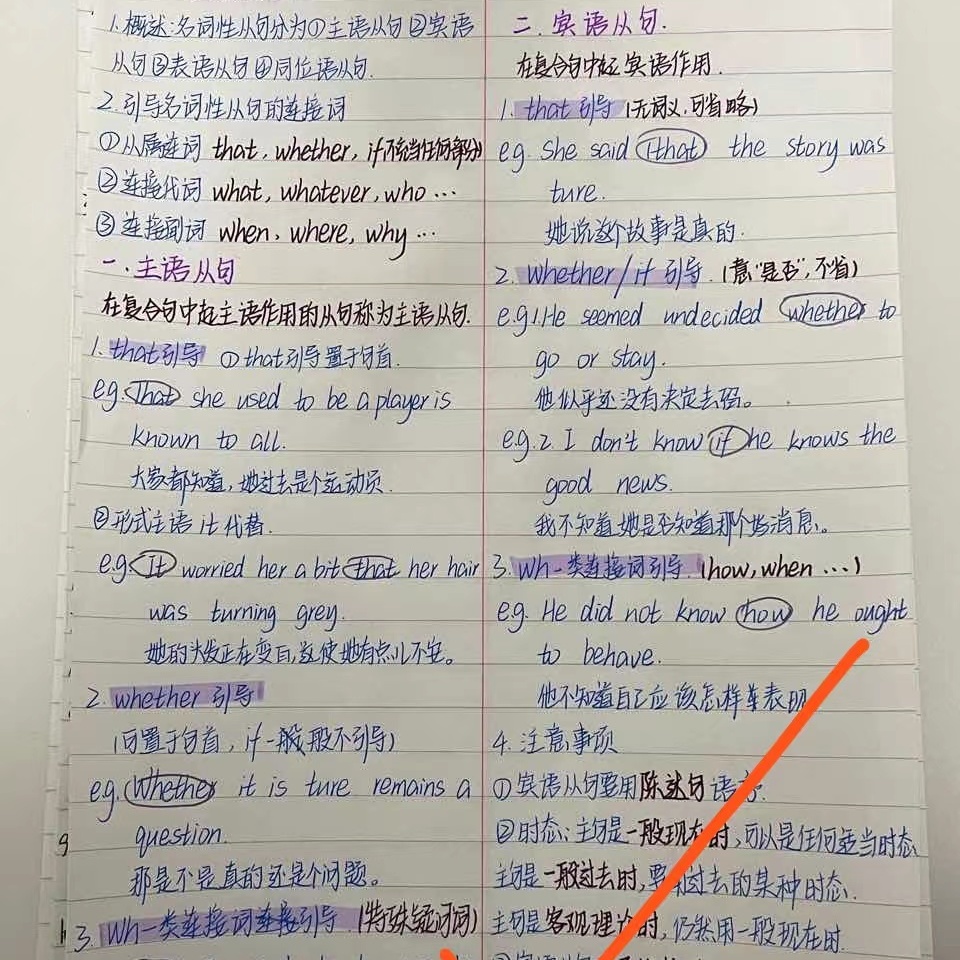 1. 概述:名词性从句分为①主语从句②宾语
从句③表语从句④同位语从句.
2. 引导名词性从句的连接词
①从属连词 that, whether, if(不充当任何部分)
②连接代词 what, whatever, who …
③连接副词 when, where, why …
一.主语从句
在复合句中起主语作用的从句称为主语从句.
1. that引导 ①that引导置于句首.
e.g. That she used to be a player is
known to all.
大家都知道,她过去是个运动员.
②形式主语 it 代替.
e.g. It worried her a bit that her hair
was turning grey.
她的头发正在变白,这使她有点儿不安。
2. whether 引导
(可置于句首, if 一般般不引导)
e.g. Whether it is ture remains a
question.
那是不是真的还是个问题。
3. Wh-类连接词连接引导 (特殊疑问词)
二.宾语从句.
在复合句中起宾语作用.
1. that 引导 (无词义,可省略)
e.g. She said (that) the story was
ture.
她说这个故事是真的.
2. whether/if 引导.(意"是否",不省)
e.g.1.He seemed undecided whether to
go or stay.
他似乎还没有决定去留。
e.g.2. I don't know if he knows the
good news.
我不知道她是否知道那个好消息。
3. wh-类连接词引导.(how, when …)
e.g. He did not know how he ought
to behave.
他不知道自己应该怎样去表现
4. 注意事项
①宾语从句要用陈述句语
②时态:主句是一般现在时,可以是任何适当时态
主句是一般过去时,要 过去的某种时态.
主句是客观理论时,仍然用一般现在时.